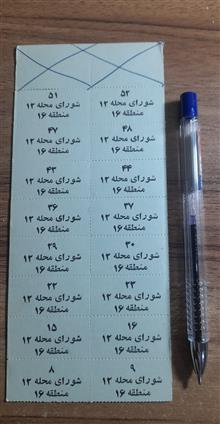 ۵۲ ۵۱
شورای محله ۱۲ شورای محله ۱۲
منطقه ۱۶ منطقه ۱۶
۴۸ ۴۷
شورای محله ۱۲ شورای محله ۱۲
منطقه ۱۶ منطقه ۱۶
۴۴ ۴۳
شورای محله ۱۲ شورای محله ۱۲
منطقه ۱۶ منطقه ۱۶
۳۷ ۳۶
شورای محله ۱۲ شورای محله ۱۲
منطقه ۱۶ منطقه ۱۶
۳۰ ۲۹
شورای محله ۱۲ شورای محله ۱۲
منطقه ۱۶ منطقه ۱۶
۲۳ ۲۲
شورای محله ۱۲ شورای محله ۱۲
منطقه ۱۶ منطقه ۱۶
۱۶ ۱۵
شورای محله ۱۲ شورای محله ۱۲
منطقه ۱۶ منطقه ۱۶
۹ ۸
شورای محله ۱۲ شورای محله ۱۲
منطقه ۱۶ منطقه ۱۶